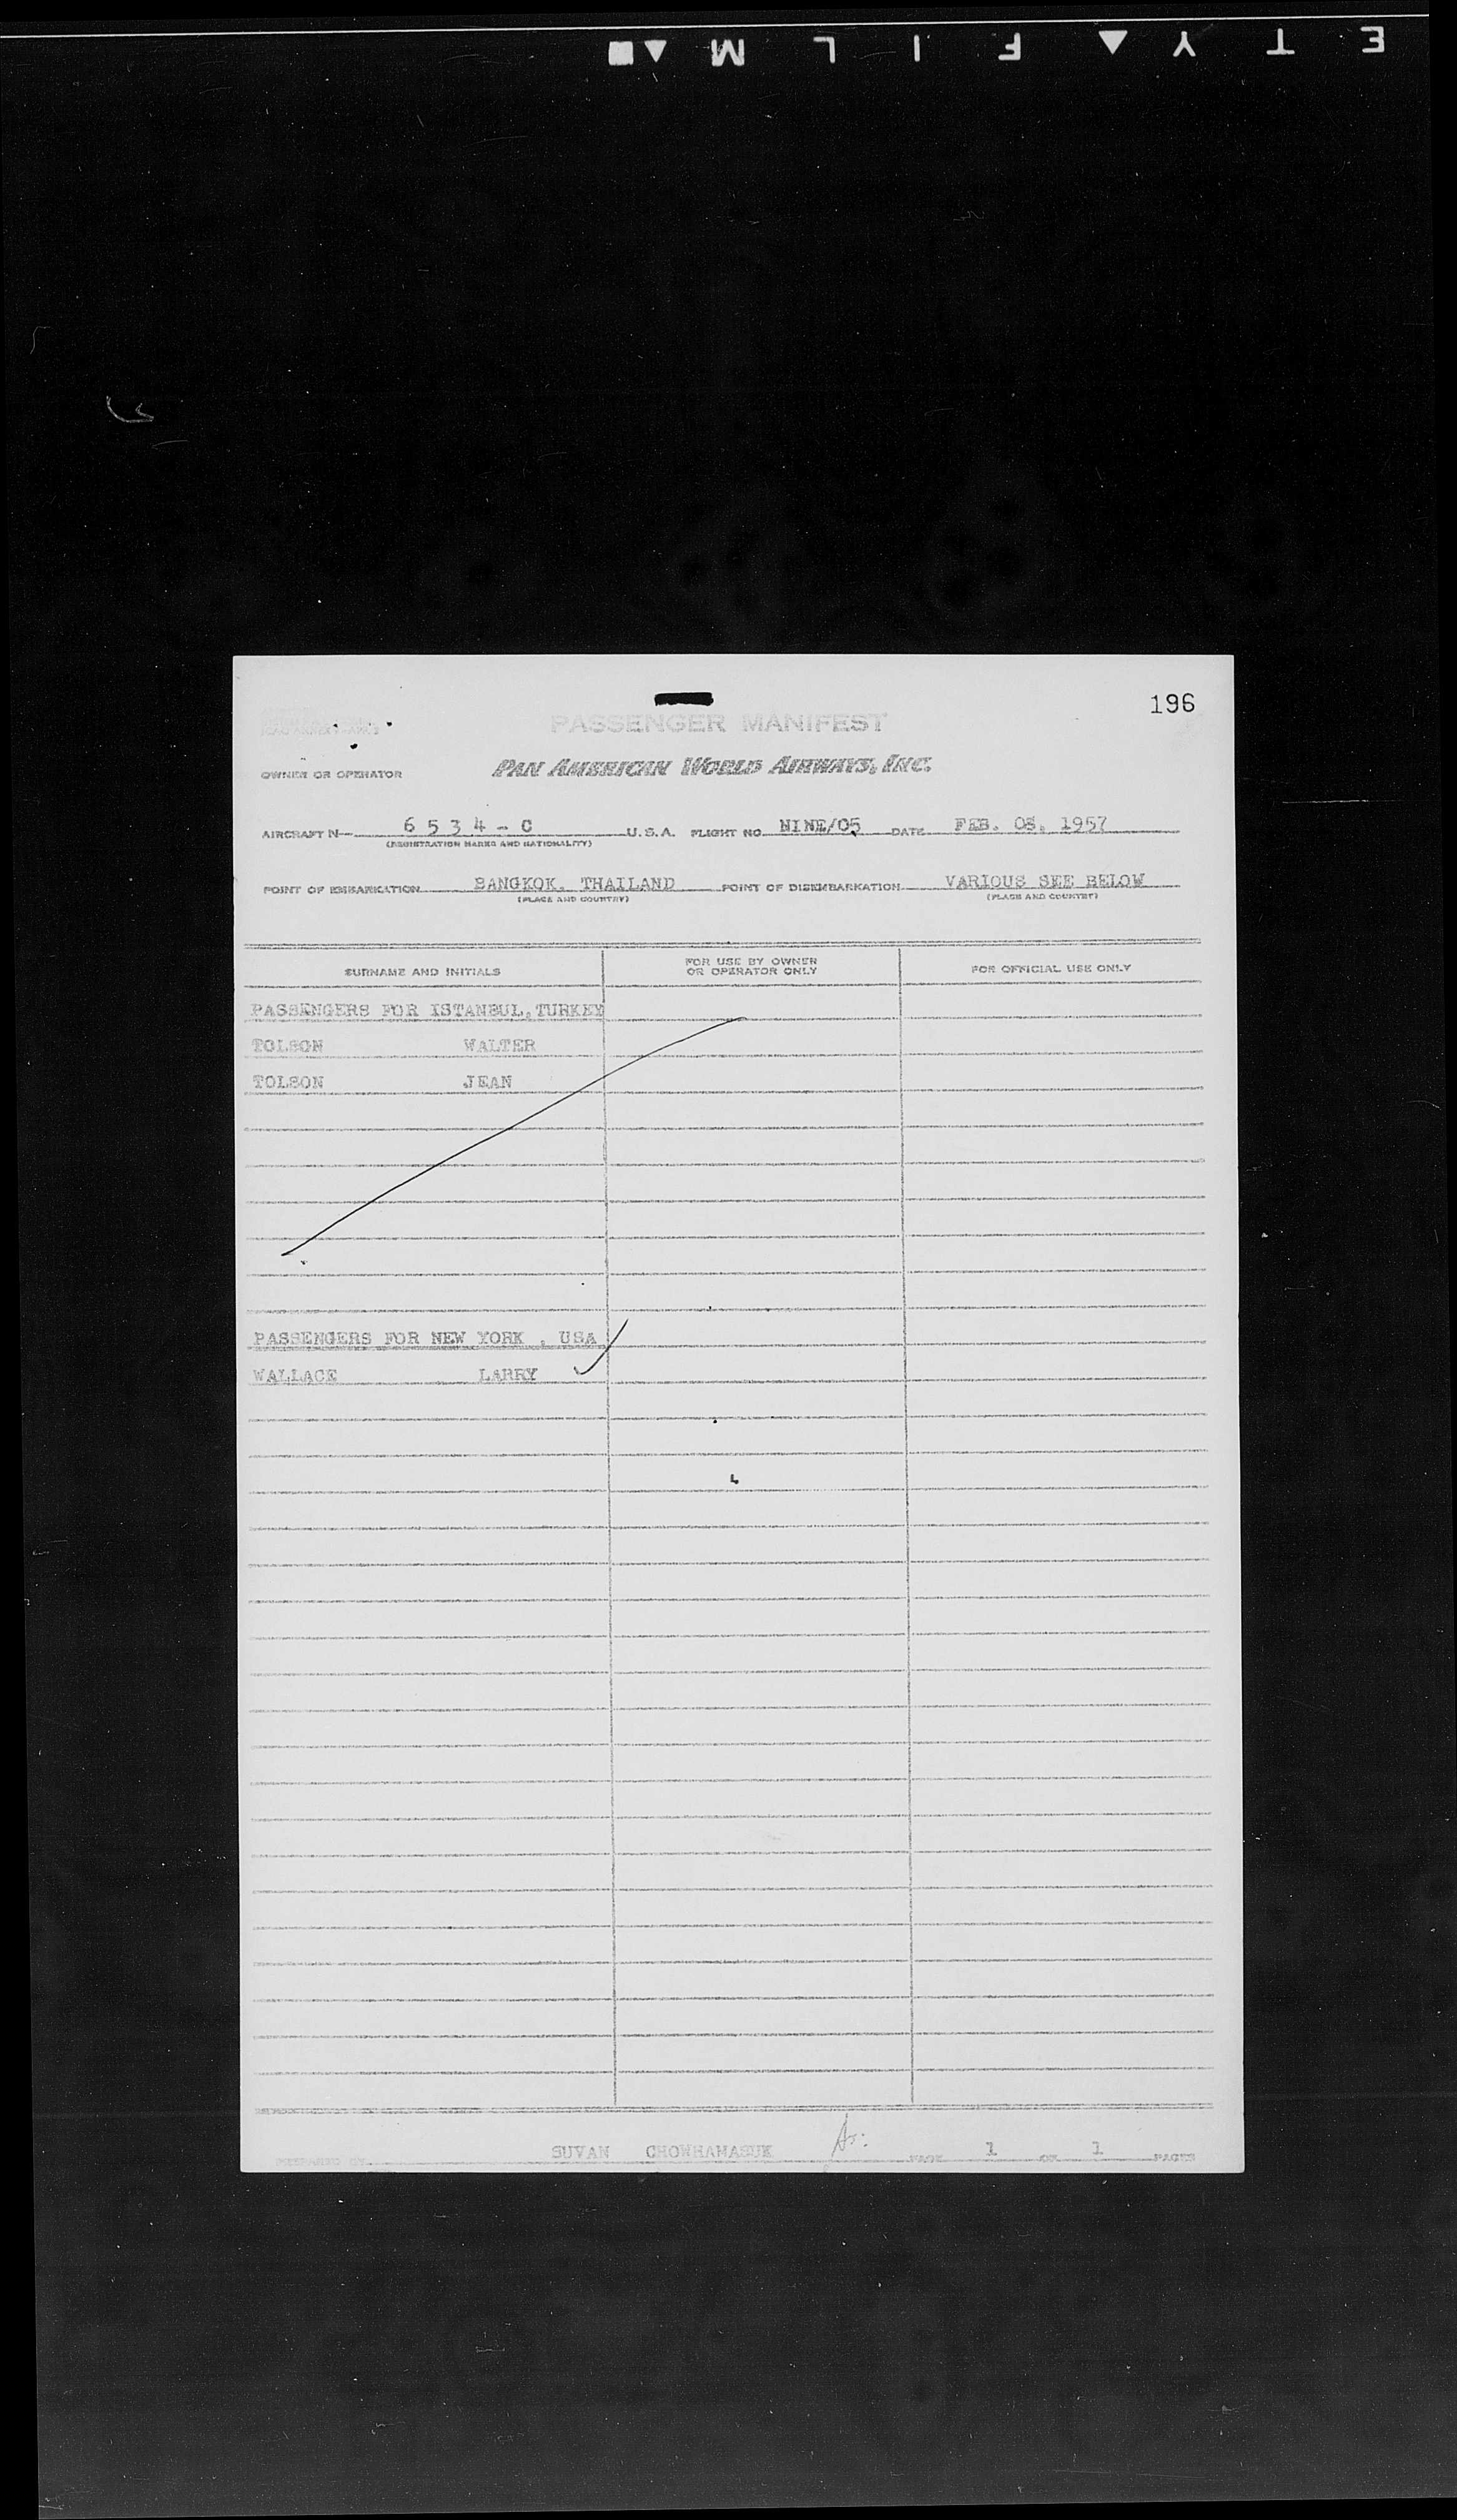 E T Y ▲ F I L M ▲■
196
PASSENGER MANIFEST
OWNER OR OPERATOR PAN AMERICAN WORLD AIRWAYS, INC.
AIRCRAFT N— 6 5 3 4 - C U. S. A. FLIGHT NO. NINE/05 DATE FEB. 08, 1957
(REGISTRATION MARKS AND NATIONALITY)
POINT OF EMBARKATION BANGKOK, THAILAND POINT OF DISEMBARKATION VARIOUS SEE BELOW
(PLACE AND COUNTRY) (PLACE AND COUNTRY)
SURNAME AND INITIALS FOR USE BY OWNER OR OPERATOR ONLY FOR OFFICIAL USE ONLY
PASSENGERS FOR ISTANBUL, TURKEY
TOLSON WALTER
TOLSON JEAN
PASSENGERS FOR NEW YORK , USA
WALLACE LARRY
PREPARED BY SUVAN CHOWHANASUK PAGE 1 OF 1 PAGES